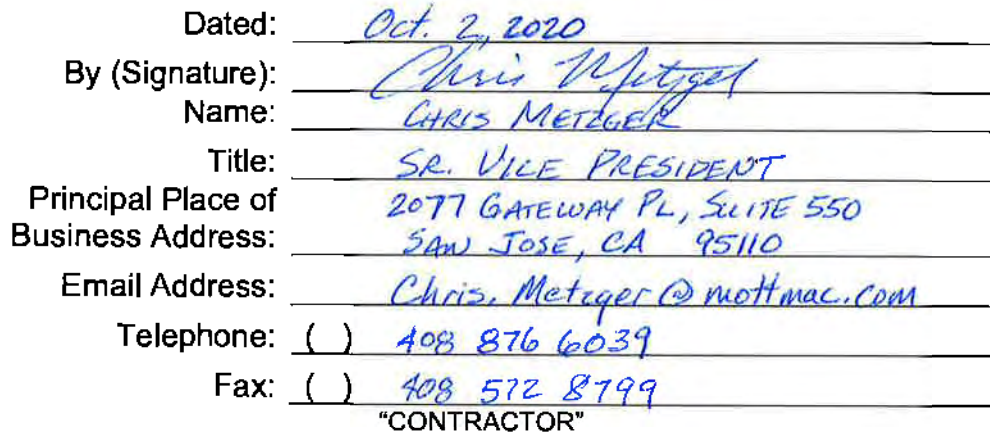 Dated: Oct. 2, 2020
By (Signature): Chris Metzger
Name: CHRIS METZGER
Title: SR. VICE PRESIDENT
Principal Place of 2077 GATEWAY PL, SUITE 550
Business Address: SAN JOSE, CA 95110
Email Address: Chris.Metzger@mottmac.com
Telephone: ( ) 408 876 6039
Fax: ( ) 408 572 8799
"CONTRACTOR"